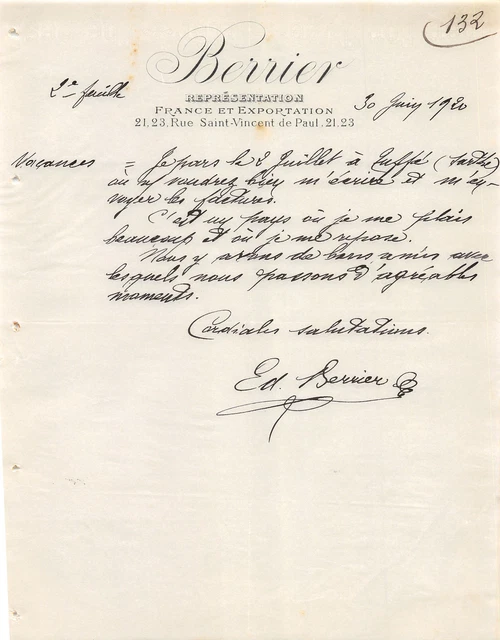 132
Berrier
2e feuille
REPRÉSENTATION
FRANCE ET EXPORTATION
30 Juin 1920
21,23, Rue Saint-Vincent de Paul. 21.23
Vacances = Je pars le 2 Juillet à Tuffé (Sarthe)
où vs voudrez bien m'écrire et m'en-
voyer les factures.
C'est un pays où je me plais
beaucoup et où je me repose.
Nous y avons de bons amis avec
lesquels nous passons d'agréables
moments.
Cordiales salutations.
Ed. Berrier